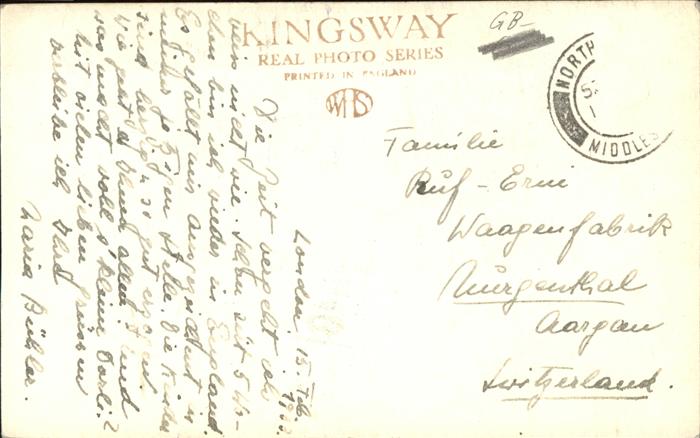 KINGSWAY
REAL PHOTO SERIES
PRINTED IN ENGLAND
WHS
GB-
NORTH
MIDDLES
Familie
Ruf-Erni
Waagenfabrik
Murgenthal
Aargau
Switzerland.
London, 15. Feb.
Die Zeit vergeht als
wäre nicht wie. Schon seit 5 Wo-
chen bin ich wieder in England.
Es gefällt mir ausgezeichnet in
meiner Stelle. Die Kinder
sind gut erzogen.
Wie geht es Ihnen allen? Und
was macht wohl s'kleine Dorli?
Mit vielen lieben Grüssen
verbleibe ich Ihre
Maria Bühler.